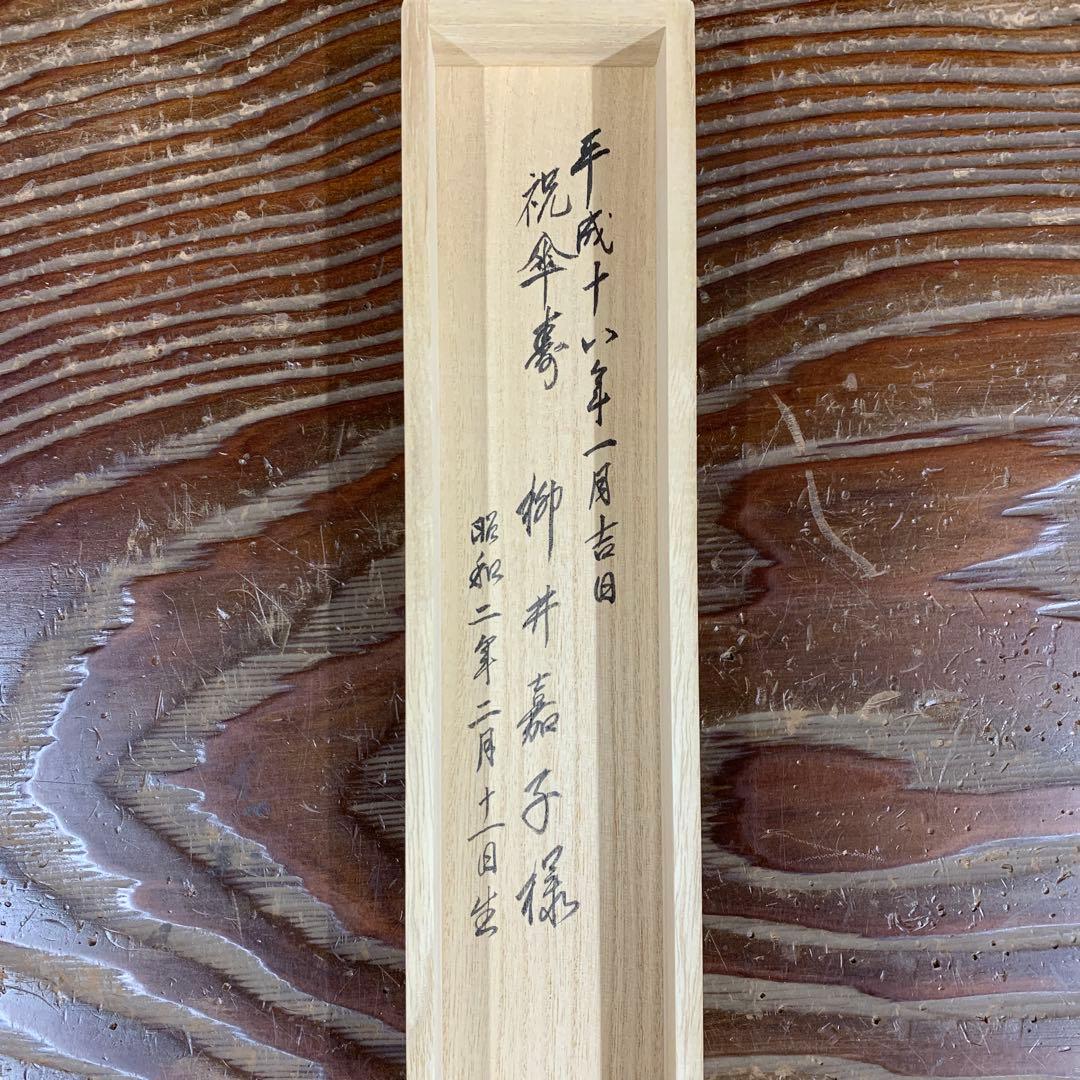 平成十八年一月吉日
祝傘寿 柳井嘉子様
昭和二年二月十一日生